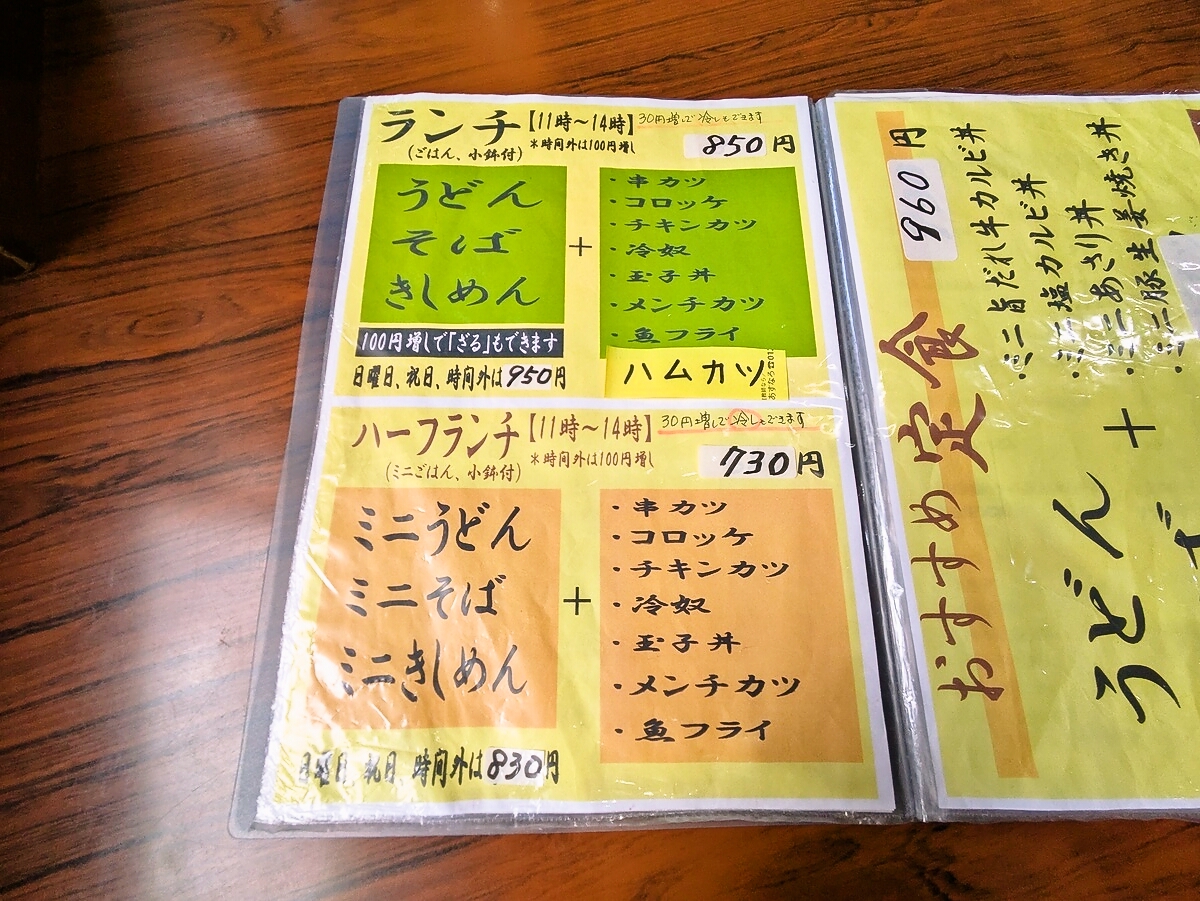 ランチ【11時～14時】 30円増しで冷しもできます
(ごはん、小鉢付) ＊時間外は100円増し 850円
うどん
そば
きしめん
+
・串カツ
・コロッケ
・チキンカツ
・冷奴
・玉子丼
・メンチカツ
・魚フライ
ハムカツ
100円増しで「ざる」もできます
日曜日、祝日、時間外は950円
ハーフランチ【11時～14時】 30円増しで冷しもできます
(ミニごはん、小鉢付) ＊時間外は100円増し 730円
ミニうどん
ミニそば
ミニきしめん
+
・串カツ
・コロッケ
・チキンカツ
・冷奴
・玉子丼
・メンチカツ
・魚フライ
日曜日、祝日、時間外は830円
おすすめ定食 960円
・ミニ旨だれ牛カルビ丼
・ミニ塩カルビ丼
・ミニあさり丼
・ミニ豚生姜焼き丼
+
うどん